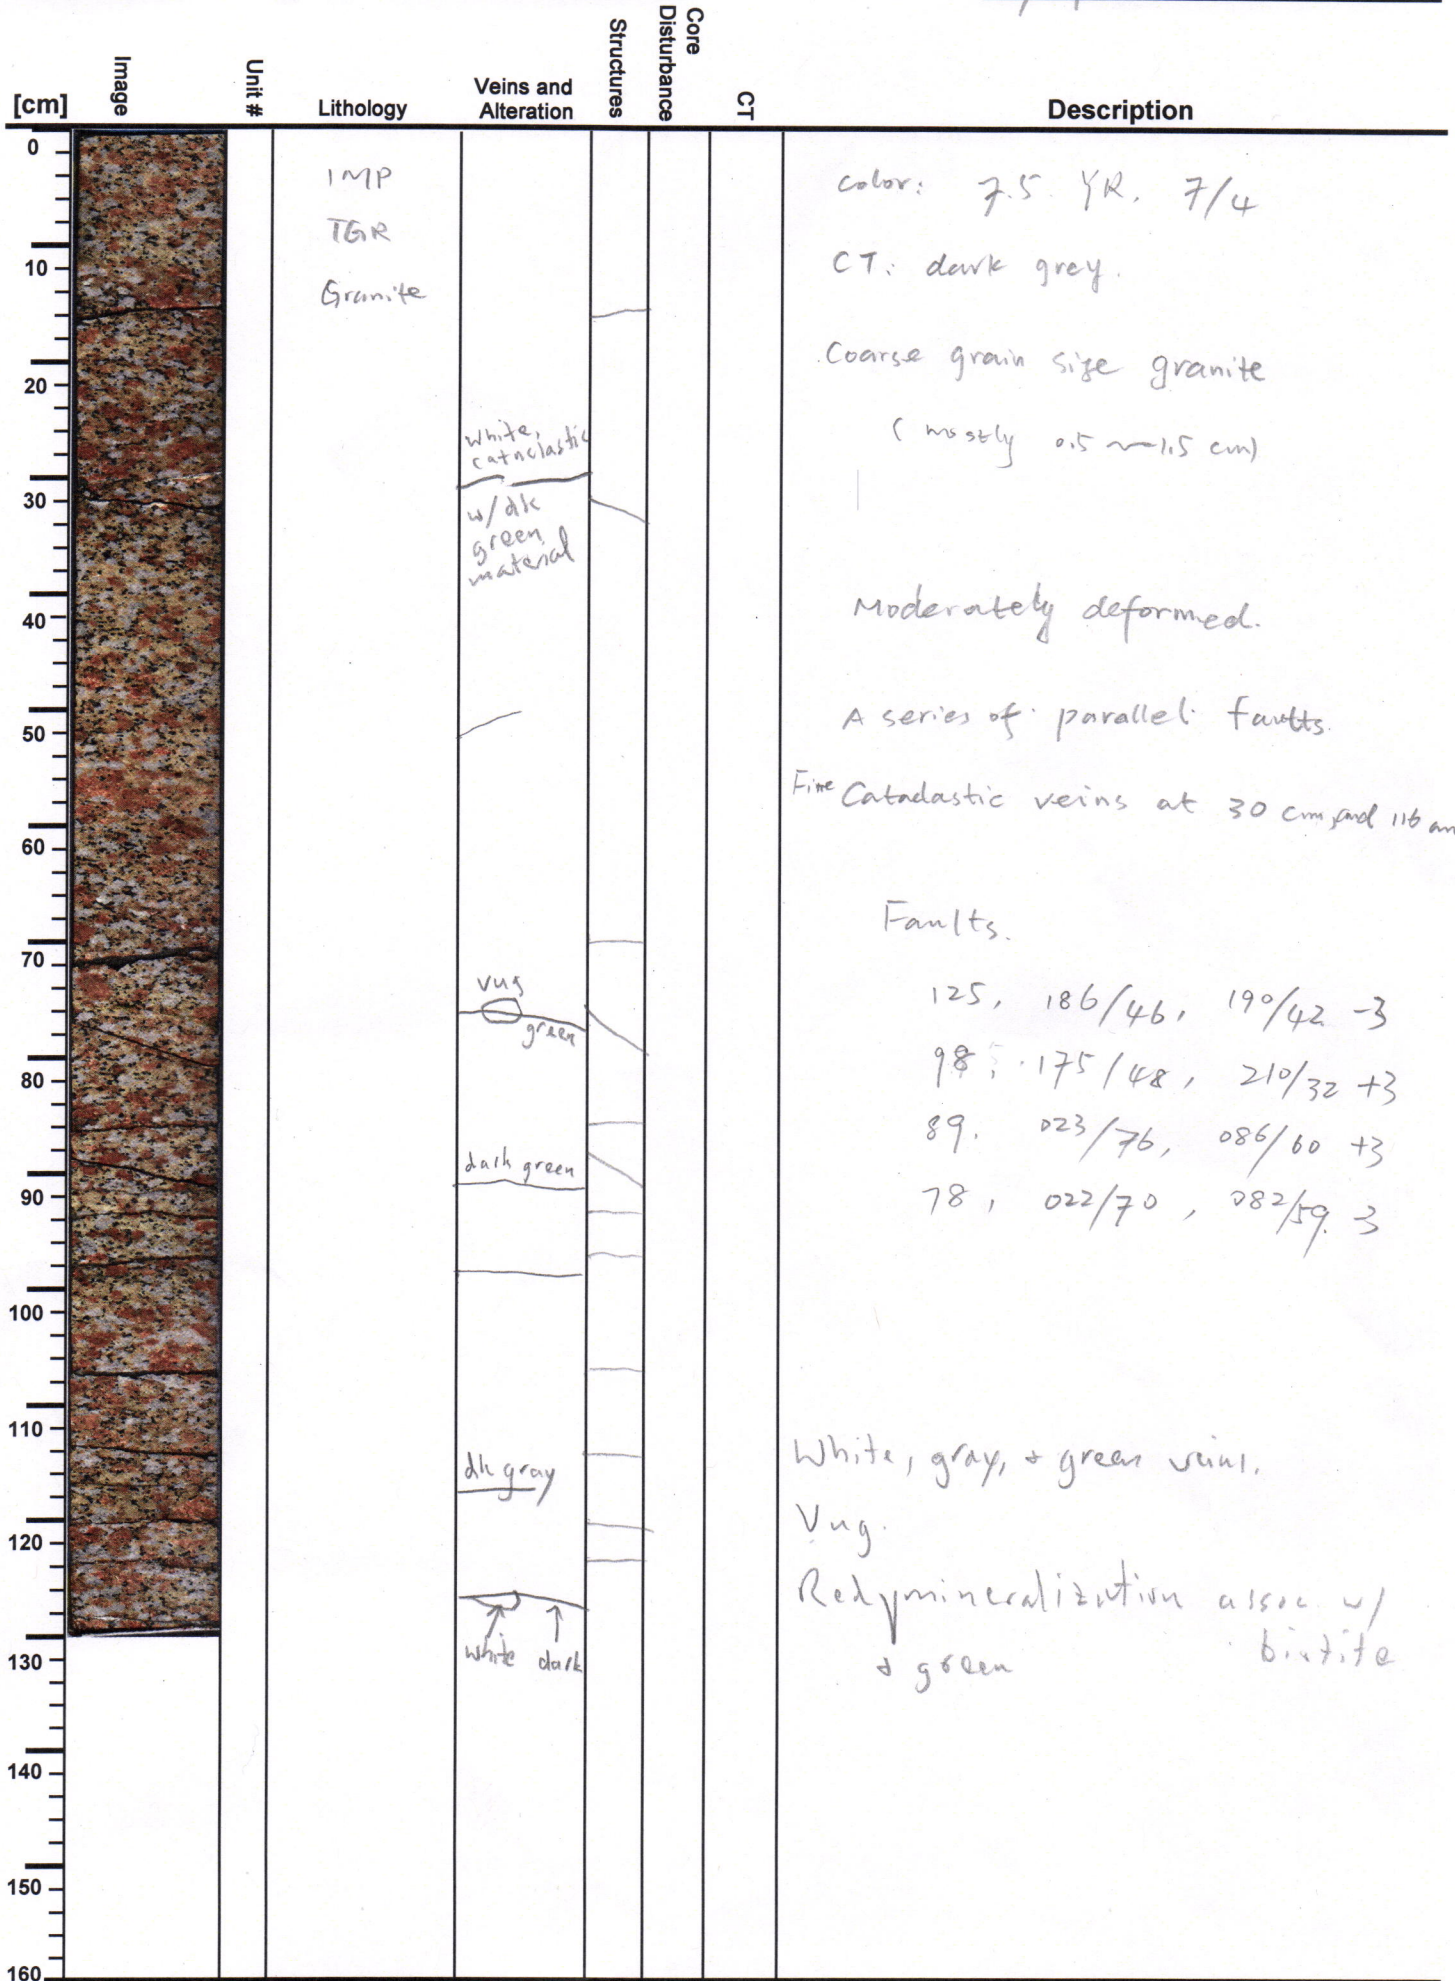 [cm]
Image
Unit #
Lithology
Veins and
Alteration
Structures
Core
Disturbance
CT
Description
0
10
20
30
40
50
60
70
80
90
100
110
120
130
140
150
160
IMP
TGR
Granite
white,
cataclastic
w/dk
green
material
vug
green
dark green
dk gray
white dark
color: 7.5 YR. 7/4
CT: dark grey.
Coarse grain size granite
(mostly 0.5 ~ 1.5 cm)
Moderately deformed.
A series of parallel faults.
Fine Cataclastic veins at 30 cm, and 116 cm
Faults.
125, 186/46, 190/42 -3
98, 175/48, 210/32 +3
89. 023/76, 086/60 +3
78, 022/70, 082/59. -3
White, gray, + green veins.
Vug.
Red mineralization assoc. w/
+ green biotite